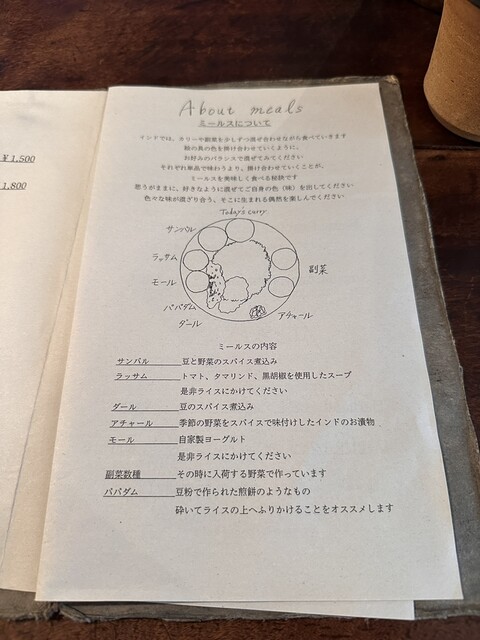 ¥1,500
1,800
About meals
ミールスについて
インドでは、カリーや副菜を少しずつ混ぜ合わせながら食べていきます
絵の具の色を掛け合わせていくように、
お好みのバランスで混ぜてみてください
それぞれ単品で味わうより、掛け合わせていくことが、
ミールスを美味しく食べる秘訣です
思うがままに、好きなように混ぜてご自身の色（味）を出してください
色々な味が混ざり合う、そこに生まれる偶然を楽しんでください
Today's curry
サンバル
ラッサム
モール
パパダム
ダール
副菜
アチャール
ミールスの内容
サンバル 豆と野菜のスパイス煮込み
ラッサム トマト、タマリンド、黒胡椒を使用したスープ
是非ライスにかけてください
ダール 豆のスパイス煮込み
アチャール 季節の野菜をスパイスで味付けしたインドのお漬物
モール 自家製ヨーグルト
是非ライスにかけてください
副菜数種 その時に入荷する野菜で作っています
パパダム 豆粉で作られた煎餅のようなもの
砕いてライスの上へふりかけることをオススメします